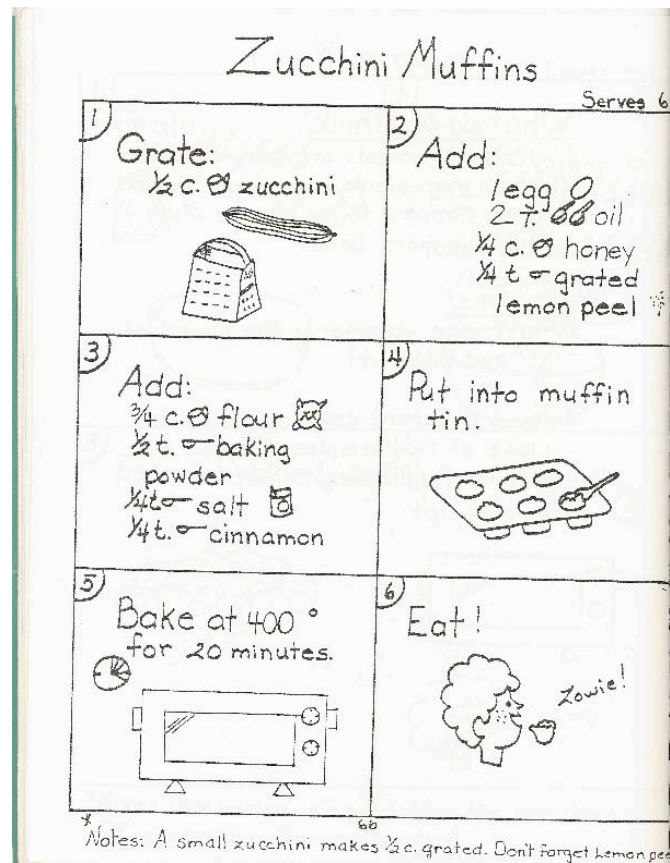 Zucchini Muffins
Serves 6
1
Grate:
½ c. zucchini
2
Add:
1 egg
2 T. oil
¼ c. honey
¼ t grated
lemon peel
3
Add:
¾ c. flour
½ t. baking
powder
¼ t salt
¼ t. cinnamon
4
Put into muffin
tin.
5
Bake at 400°
for 20 minutes.
6
Eat!
Zowie!
66
*
Notes: A small zucchini makes ½ c. grated. Don't forget Lemon pee